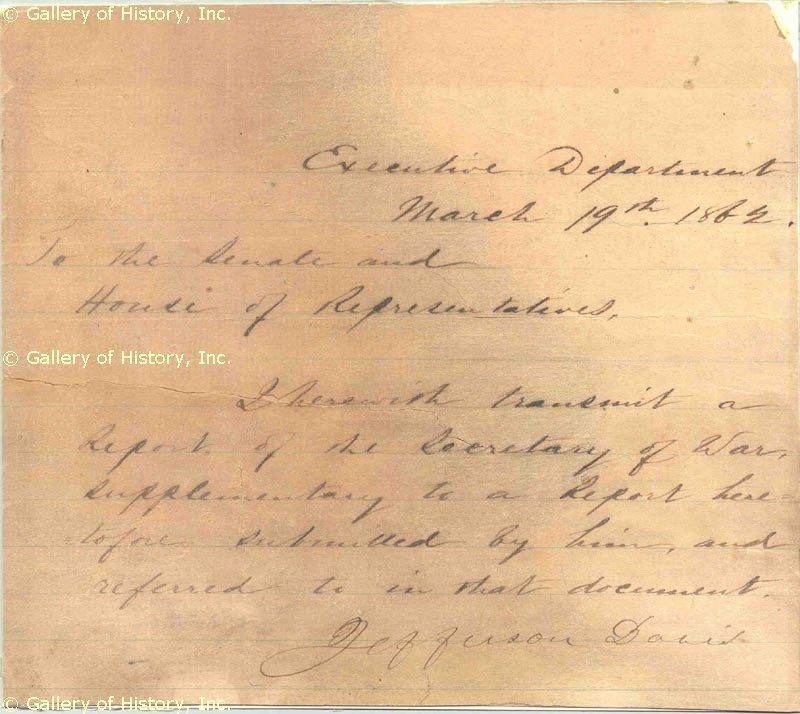 © Gallery of History, Inc.
Executive Department
March 19th. 1862.
To the Senate and
House of Representatives,
© Gallery of History, Inc.
I herewith transmit a
Report of the Secretary of War,
supplementary to a Report here=
=tofore submitted by him, and
referred to in that document.
Jefferson Davis
© Gallery of History, Inc.